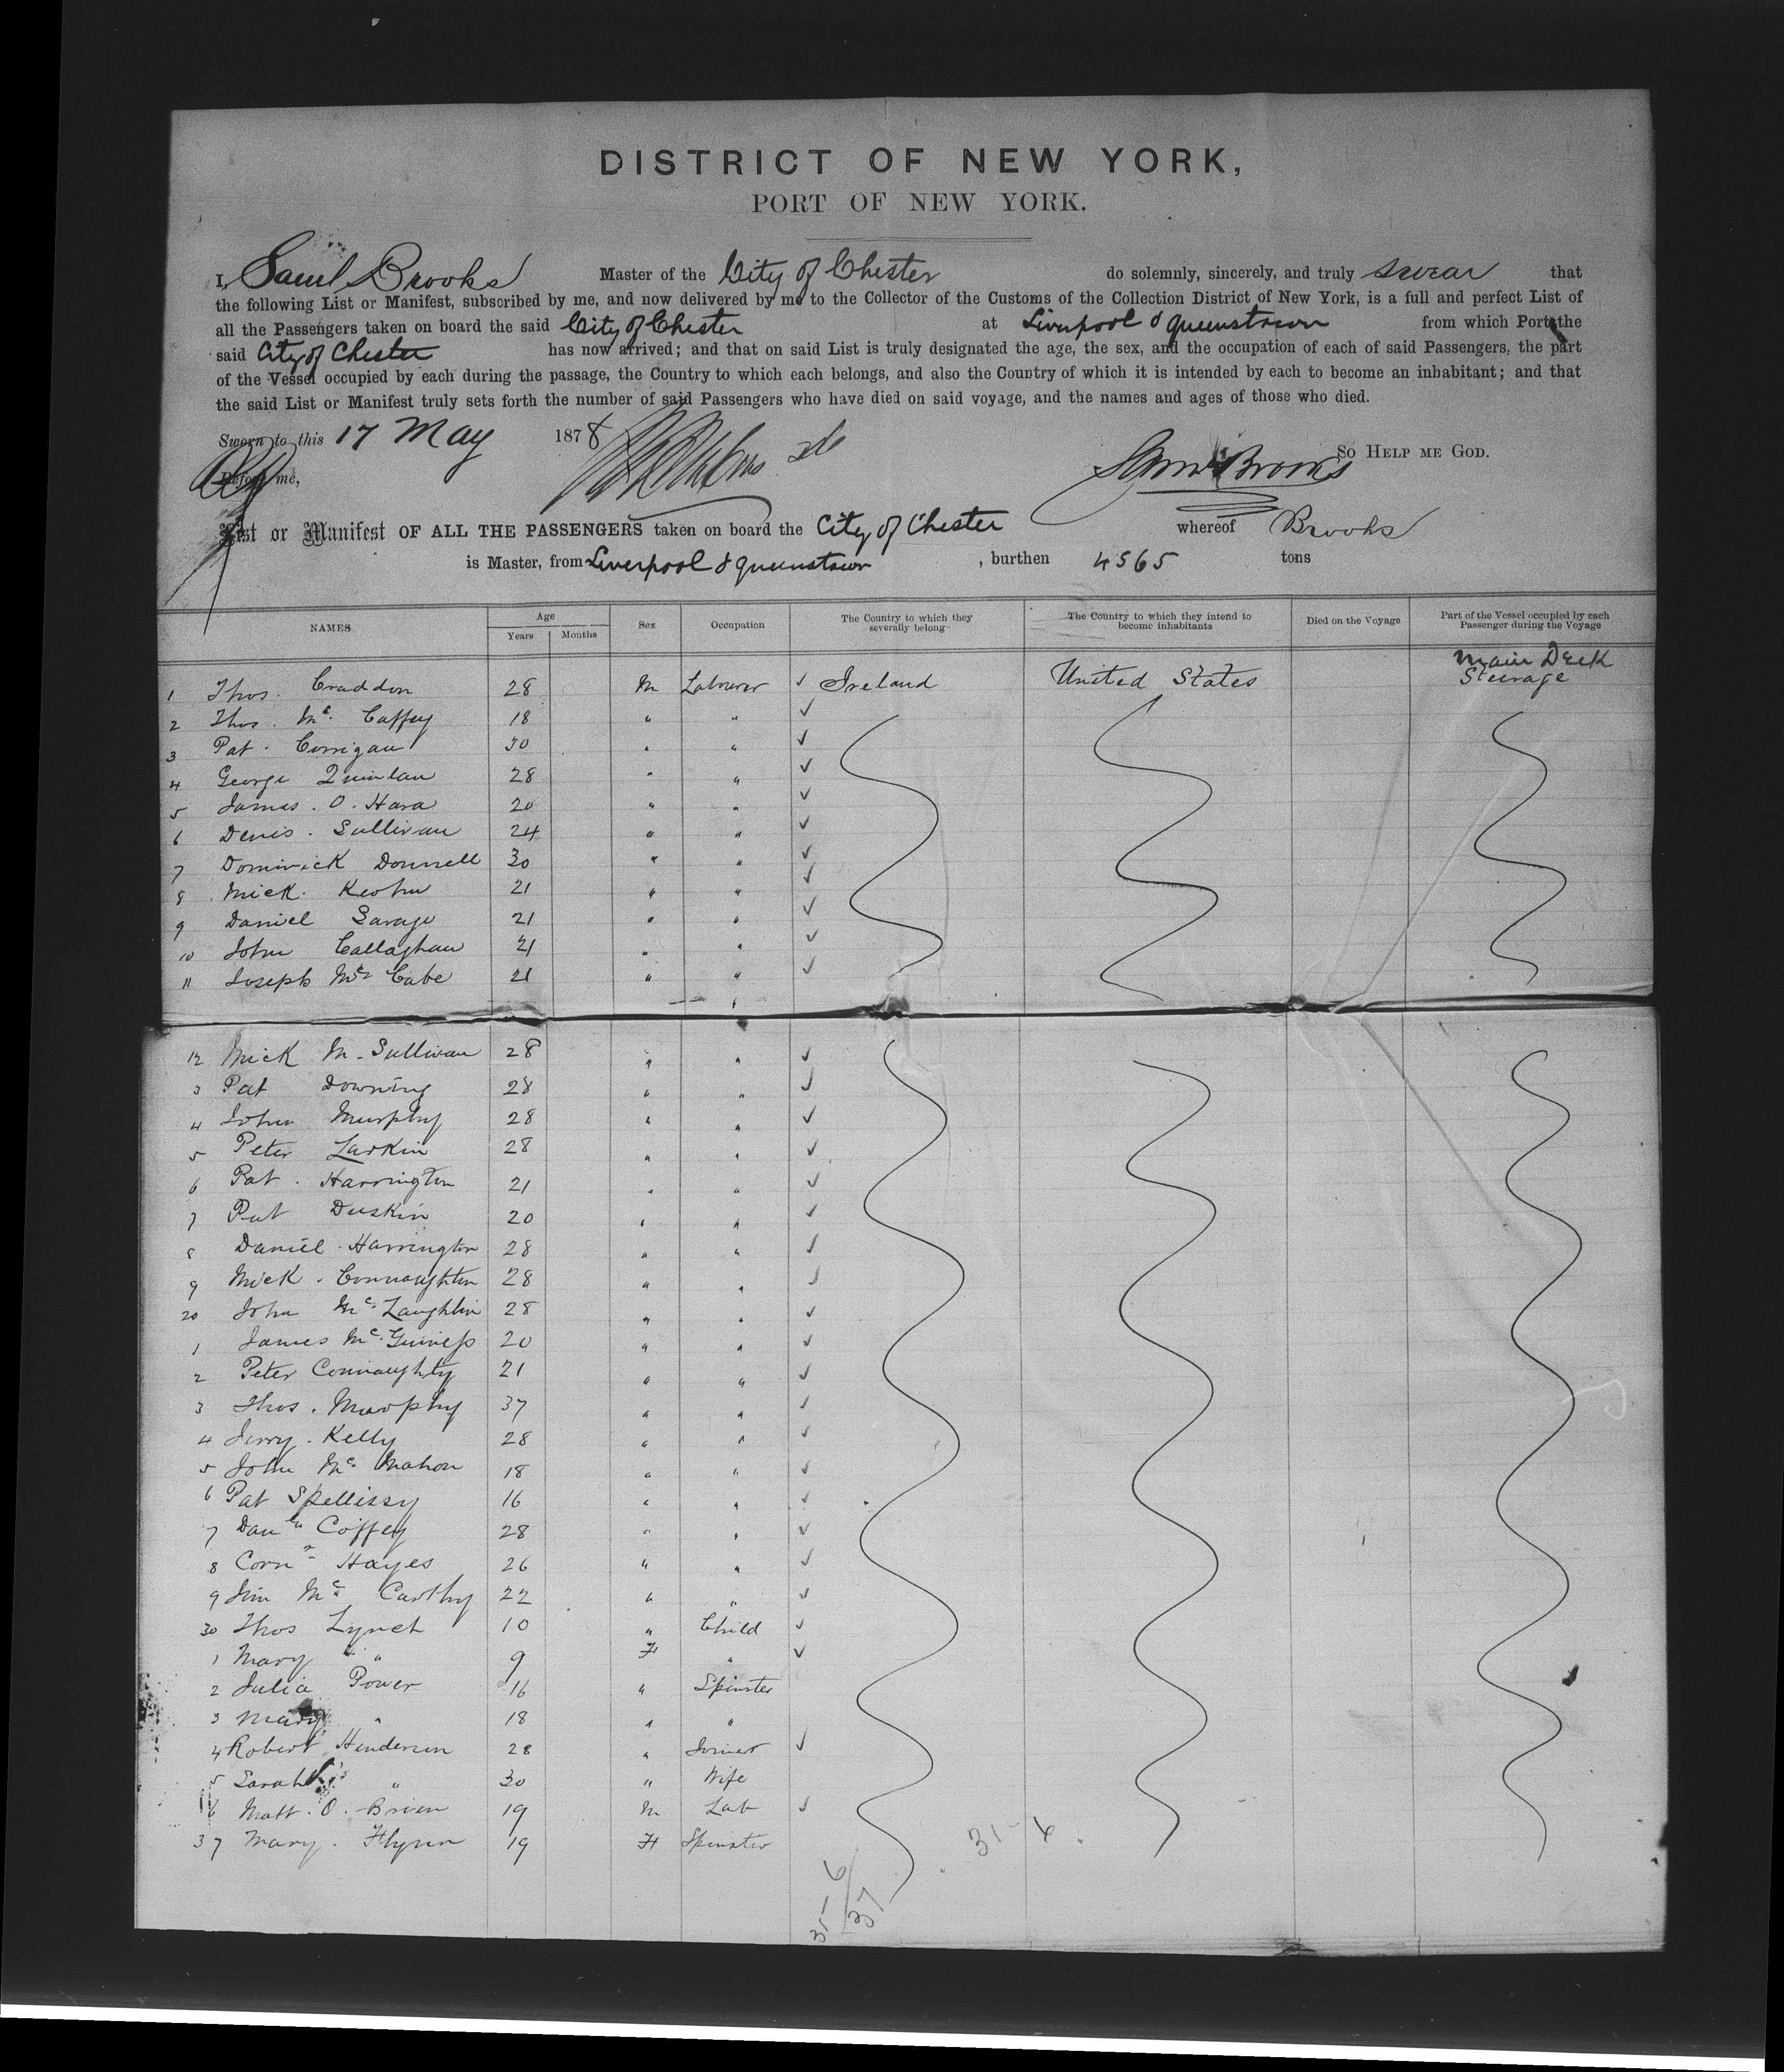 DISTRICT OF NEW YORK,
PORT OF NEW YORK.
I, Saml Brooks Master of the City of Chester do solemnly, sincerely, and truly swear that
the following List or Manifest, subscribed by me, and now delivered by me to the Collector of the Customs of the Collection District of New York, is a full and perfect List of
all the Passengers taken on board the said City of Chester at Liverpool & Queenstown from which Port the
said City of Chester has now arrived; and that on said List is truly designated the age, the sex, and the occupation of each of said Passengers, the part
of the Vessel occupied by each during the passage, the Country to which each belongs, and also the Country of which it is intended by each to become an inhabitant; and that
the said List or Manifest truly sets forth the number of said Passengers who have died on said voyage, and the names and ages of those who died.
Sworn to this 17 May 1878
So HELP ME GOD.
Before me, Saml Brooks
List or Manifest OF ALL THE PASSENGERS taken on board the City of Chester whereof Brooks
is Master, from Liverpool & Queenstown, burthen 4565 tons
NAMES Age Years Months Sex Occupation The Country to which they severally belong The Country to which they intend to become inhabitants Died on the Voyage Part of the Vessel occupied by each Passenger during the Voyage
Main Deck
1 Thos. Craddon 28 M Labourer ✓ Ireland United States Steerage
2 Thos. Mc Caffey 18 " " ✓
3 Pat. Corrigan 30 " " ✓
4 George Quinlan 28 " " ✓
5 James. O. Hara 20 " " ✓
6 Denis. Sullivan 24 " " ✓
7 Dominick Donnell 30 " " ✓
8 Mick. Keohn 21 " " ✓
9 Daniel Savage 21 " " ✓
10 John Callaghan 21 " " ✓
11 Joseph Mc Cabe 21 " " ✓
12 Mick M. Sullivan 28 " " ✓
3 Pat Downing 28 " " ✓
4 John Murphy 28 " " ✓
5 Peter Larkin 28 " " ✓
6 Pat. Harrington 21 " " ✓
7 Pat Duskin 20 " " ✓
8 Daniel Harrington 28 " " ✓
9 Mick. Connaughton 28 " " ✓
20 John Mc Laughlin 28 " " ✓
1 James Mc Guiness 20 " " ✓
2 Peter Connaughty 21 " " ✓
3 Thos. Murphy 37 " " ✓
4 Jerry. Kelly 28 " " ✓
5 John Mc Mahon 18 " " ✓
6 Pat Spellissy 16 " " ✓
7 Danl Coffey 28 " " ✓
8 Corns Hayes 26 " " ✓
9 Jim Mc Carthy 22 " " ✓
30 Thos Lynch 10 " Child ✓
1 Mary " 9 F " ✓
2 Julia Power 16 " Spinster
3 Mary " 18 " "
4 Robert Henderson 28 " Joiner ✓
5 Sarah " 30 " Wife
6 Matt. O. Brien 19 M Lab ✓
37 Mary. Flynn 19 F Spinster
31 - 6.
35 6/37